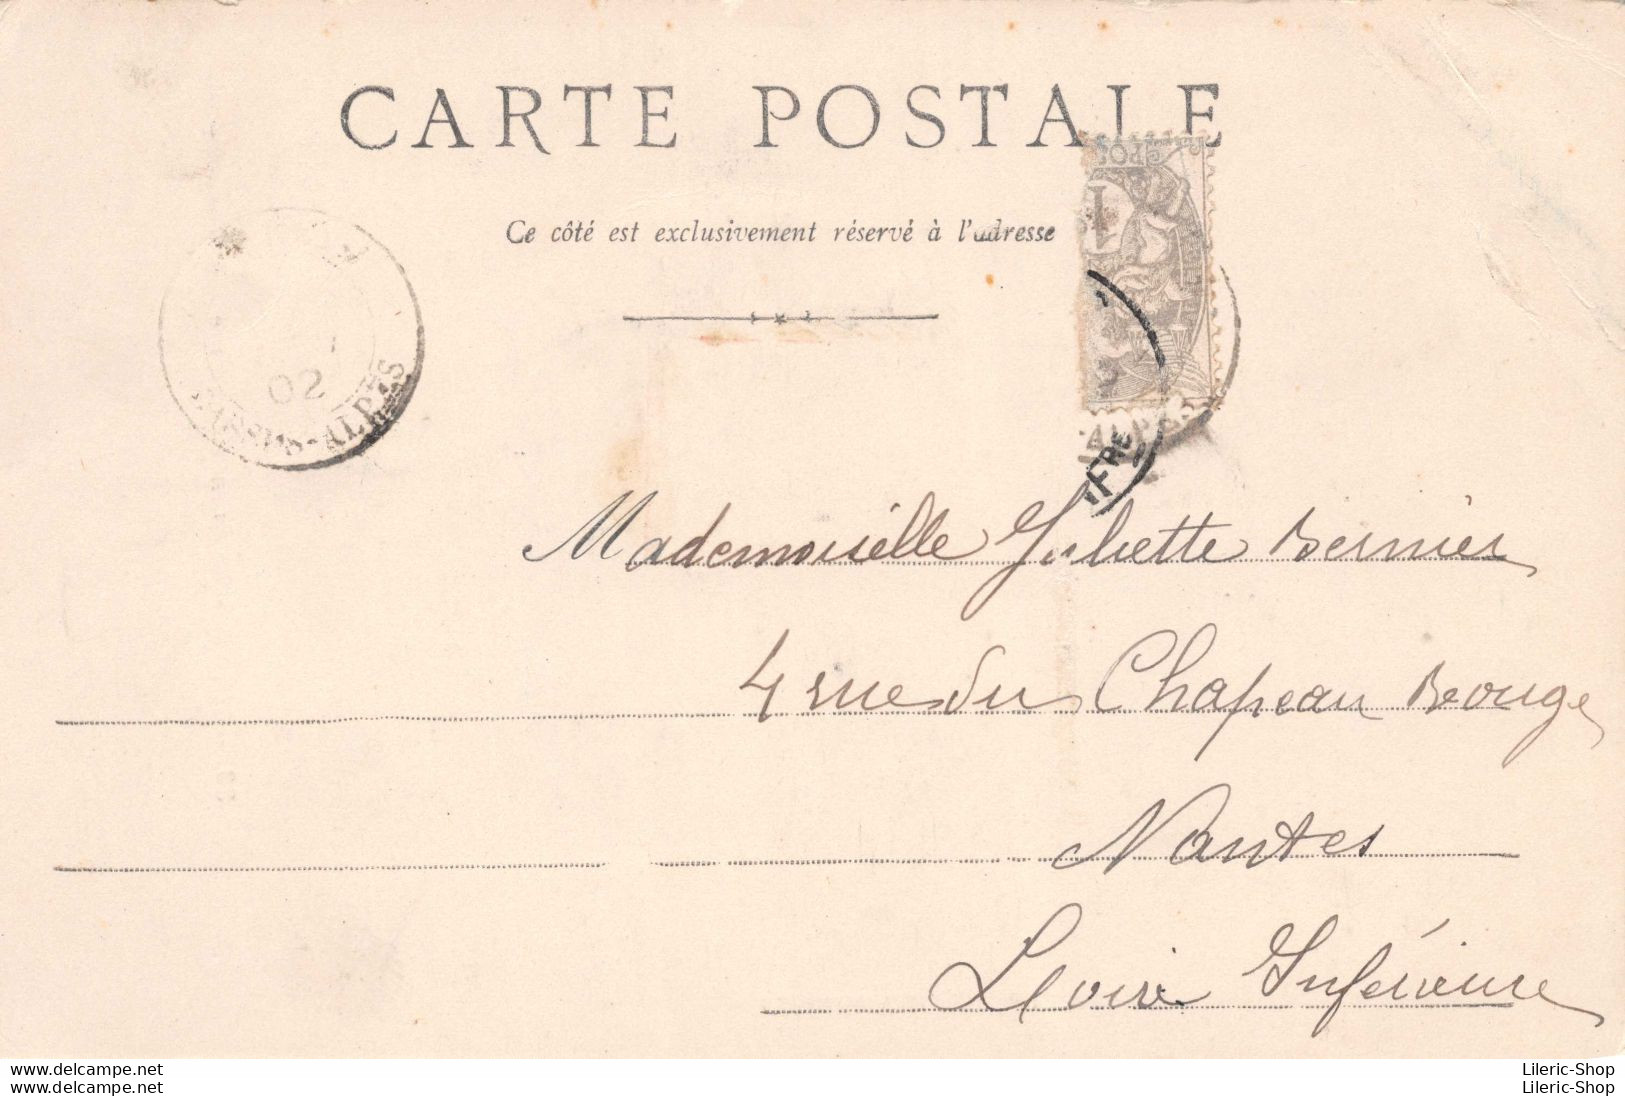 CARTE POSTALE
Ce côté est exclusivement réservé à l'adresse
POS
1
02
BASSES-ALPES
ALPES
Mademoiselle Juliette Bernier
4 rue du Chapeau Rouge
Nantes
Loire Inférieure
delcampe.net
Lileric-Shop
delcampe.net
Lileric-Shop